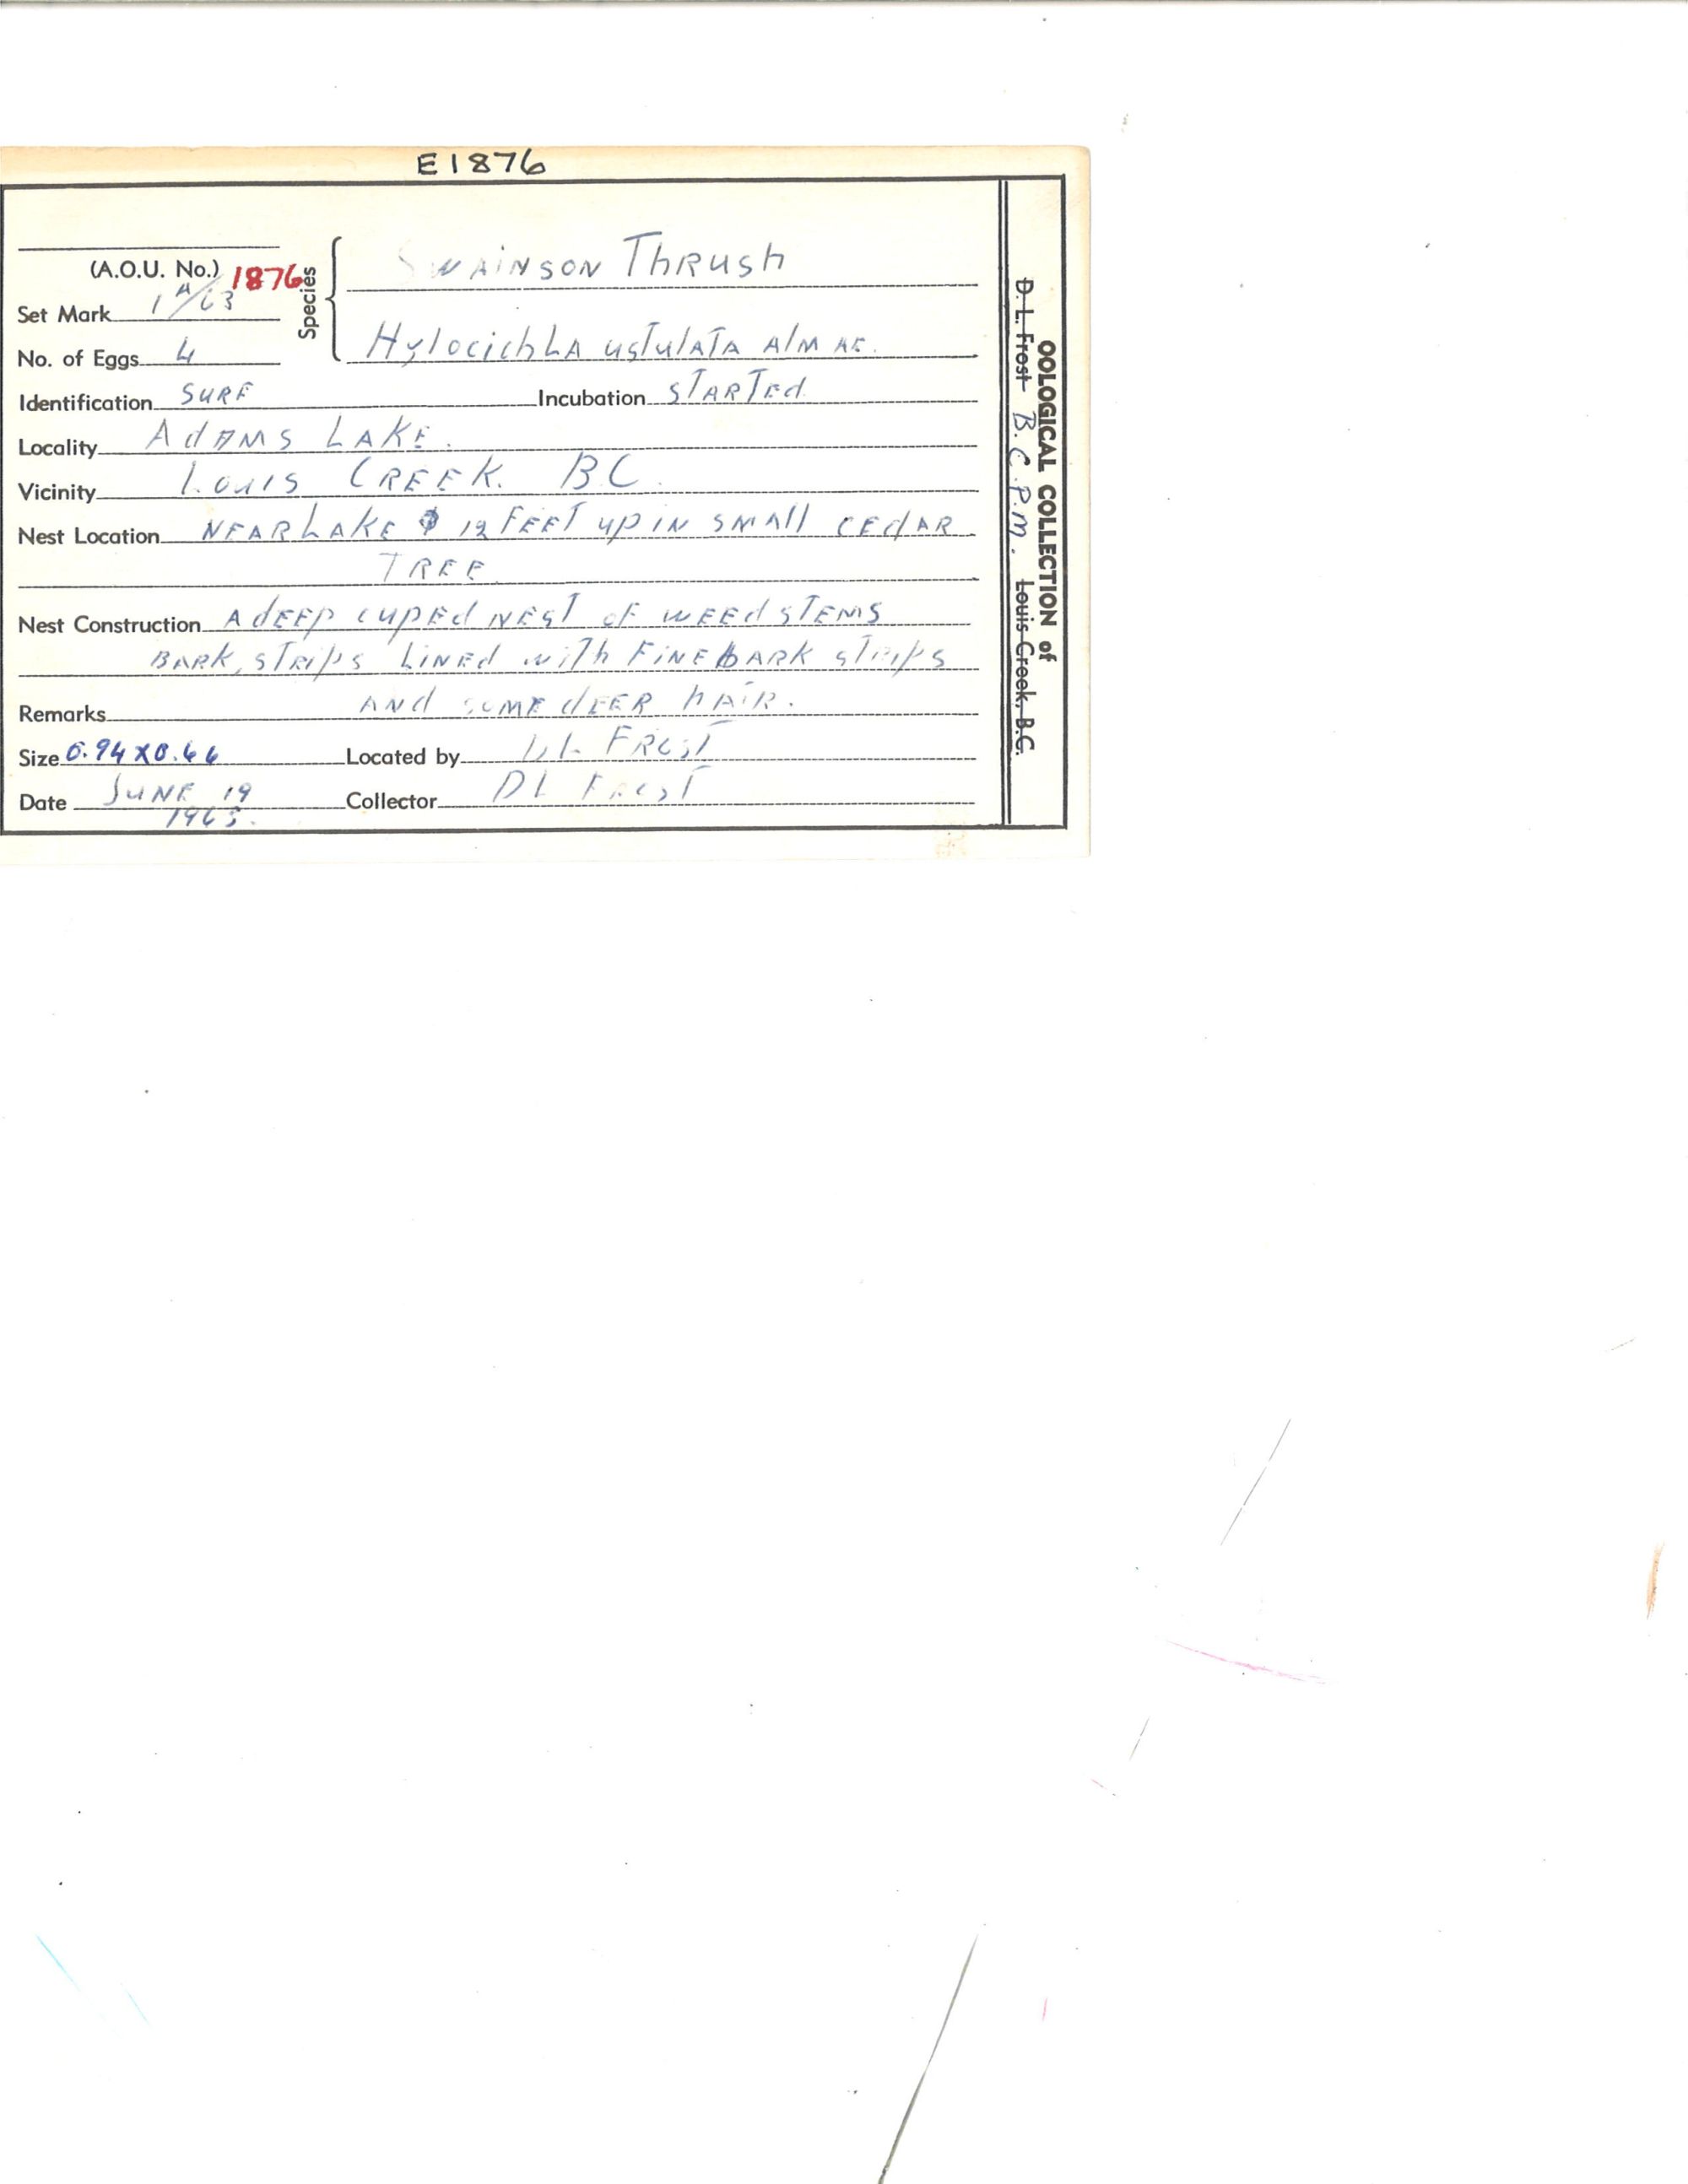 E1876
(A.O.U. No.) 1876
Species
Swainson Thrush
Set Mark 1A/63
Hylocichla ustulata almae.
No. of Eggs 4
Identification SURE Incubation STARTED
Locality ADAMS LAKE.
Vicinity LOUIS CREEK. BC.
Nest Location NEAR LAKE 12 FEET up IN SMALL CEDAR
TREE
Nest Construction A dEEP cupEd NEST of WEEd STEMS
BARK, STRIPS LINED with FINE BARK STRIPS
Remarks ANd SOME dEER hAIR.
Size 0.94 X 0.66 Located by DL FROST
Date JUNE 19 Collector DL FROST
1963.
OOLOGICAL COLLECTION of
D. L. Frost B.C.P.M. Louis Creek, B.C.